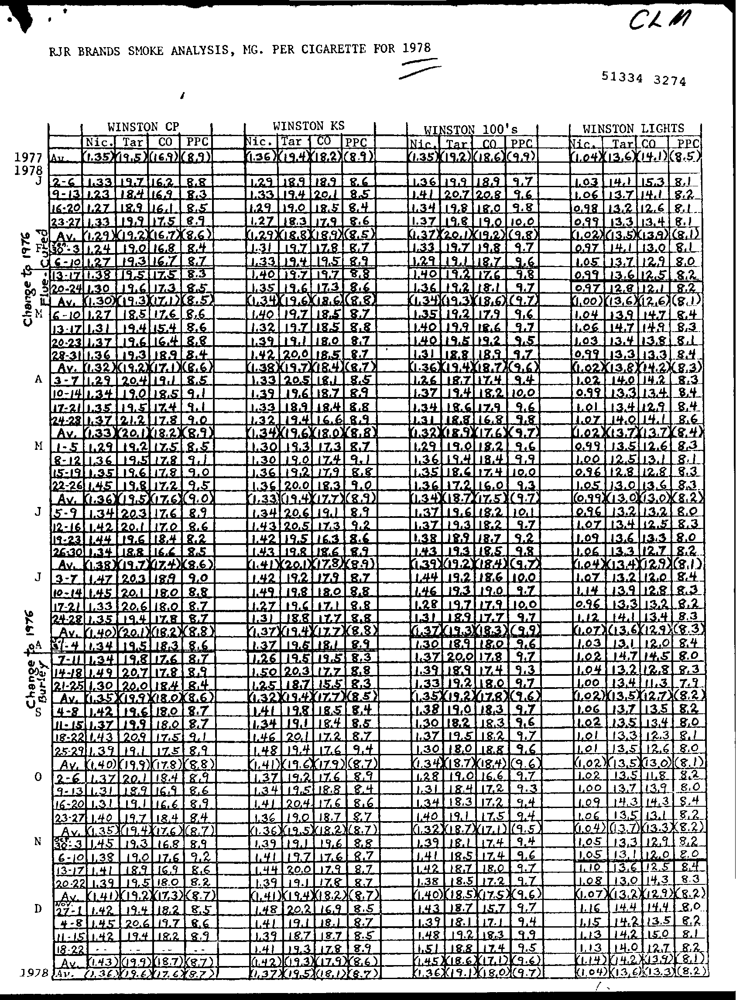 CLM
RJR BRANDS SMOKE ANALYSIS, MG. PER CIGARETTE FOR 1978
51334 3274
WINSTON CP WINSTON KS WINSTON 100's WINSTON LIGHTS
Nic. Tar CO PPC Nic. Tar CO PPC Nic. Tar CO PPC Nic. Tar CO PPC
1977 Av. (1.35)(19.5)(16.9)(8.9) (1.36)(19.4)(18.2)(8.9) (1.35)(19.2)(18.6)(9.9) (1.04)(13.6)(14.1)(8.5)
1978
J 2-6 1.33 19.7 16.2 8.8 1.29 18.9 18.9 8.6 1.36 19.9 18.9 9.7 1.03 14.1 15.3 8.1
9-13 1.23 18.4 16.9 8.3 1.33 19.4 20.1 8.5 1.41 20.7 20.8 9.6 1.06 13.7 14.1 8.2
16-20 1.27 18.9 16.1 8.5 1.29 19.0 18.5 8.4 1.34 19.8 18.0 9.8 0.98 13.2 12.6 8.1
23-27 1.33 19.9 17.5 8.9 1.27 18.3 17.9 8.6 1.37 19.8 19.0 10.0 0.99 13.3 13.4 8.1
Av. (1.29)(19.2)(16.7)(8.6) (1.29)(18.8)(18.9)(8.5) (1.37)(20.1)(19.2)(9.8) (1.02)(13.5)(13.9)(8.1)
Change to 1976 Flue-Cured
F 30-3 1.24 19.0 16.8 8.4 1.31 19.7 17.8 8.7 1.33 19.7 19.8 9.7 0.97 14.1 13.0 8.1
6-10 1.27 19.3 16.7 8.7 1.33 19.4 19.5 8.9 1.29 19.1 18.7 9.6 1.05 13.7 12.9 8.0
13-17 1.38 19.5 17.5 8.3 1.40 19.7 19.7 8.8 1.40 19.2 17.6 9.8 0.99 13.6 12.5 8.2
20-24 1.30 19.6 17.3 8.5 1.35 19.6 17.3 8.6 1.36 19.2 18.1 9.7 0.97 12.8 12.1 8.2
Av. (1.30)(19.3)(17.1)(8.5) (1.34)(19.6)(18.6)(8.8) (1.34)(19.3)(18.6)(9.7) (1.00)(13.6)(12.6)(8.1)
M 6-10 1.27 18.5 17.6 8.6 1.40 19.7 18.5 8.7 1.35 19.2 17.9 9.6 1.04 13.9 14.7 8.4
13-17 1.31 19.4 15.4 8.6 1.32 19.7 18.5 8.8 1.40 19.9 18.6 9.7 1.06 14.7 14.9 8.3
20-23 1.37 19.6 16.4 8.8 1.39 19.1 18.0 8.7 1.40 19.5 19.2 9.5 1.03 13.4 13.8 8.1
28-31 1.36 19.3 18.9 8.4 1.42 20.0 18.5 8.7 1.31 18.8 18.9 9.7 0.99 13.3 13.3 8.4
Av. (1.32)(19.2)(17.1)(8.6) (1.38)(19.7)(18.4)(8.7) (1.36)(19.4)(18.7)(9.6) (1.02)(13.8)(14.2)(8.3)
A 3-7 1.29 20.4 19.1 8.5 1.33 20.5 18.1 8.5 1.26 18.7 17.4 9.4 1.02 14.0 14.2 8.3
10-14 1.34 19.0 18.5 9.1 1.39 19.6 18.7 8.9 1.37 19.4 18.2 10.0 0.99 13.3 13.4 8.4
17-21 1.35 19.5 17.4 9.1 1.33 18.9 18.4 8.8 1.34 18.6 17.9 9.6 1.01 13.4 12.9 8.4
24-28 1.37 21.2 17.8 9.0 1.32 19.4 16.6 8.9 1.31 18.8 16.8 9.8 1.07 14.0 14.1 8.6
Av. (1.33)(20.1)(18.2)(8.9) (1.34)(19.6)(18.0)(8.8) (1.32)(18.9)(17.6)(9.7) (1.02)(13.7)(13.7)(8.4)
M 1-5 1.29 19.2 17.5 8.5 1.30 19.3 17.3 8.7 1.29 19.0 18.2 9.6 0.99 13.5 12.6 8.3
8-12 1.36 19.5 17.8 9.1 1.30 19.0 17.4 9.1 1.36 19.4 18.4 9.9 1.00 12.5 13.1 8.1
15-19 1.35 19.6 17.8 9.0 1.36 19.2 17.9 8.8 1.35 18.6 17.4 10.0 0.96 12.8 12.8 8.3
22-26 1.45 19.8 17.2 9.5 1.36 20.0 18.3 9.0 1.36 17.2 16.0 9.3 1.05 13.0 13.6 8.3
Av. (1.36)(19.5)(17.6)(9.0) (1.33)(19.4)(17.7)(8.9) (1.34)(18.7)(17.5)(9.7) (0.99)(13.0)(13.0)(8.2)
J 5-9 1.34 20.3 17.6 8.9 1.34 20.6 19.1 8.9 1.37 19.6 18.2 10.1 0.96 13.2 13.2 8.0
12-16 1.42 20.1 17.0 8.6 1.43 20.5 17.3 9.2 1.37 19.3 18.2 9.7 1.07 13.4 12.5 8.3
19-23 1.44 19.6 18.4 8.2 1.42 19.5 16.3 8.6 1.38 18.9 18.7 9.2 1.09 13.6 13.3 8.0
26-30 1.34 18.8 16.6 8.5 1.43 19.8 18.6 8.9 1.43 19.3 18.5 9.8 1.06 13.3 12.7 8.2
Av. (1.38)(19.7)(17.4)(8.6) (1.41)(20.1)(17.8)(8.9) (1.39)(19.2)(18.4)(9.7) (1.04)(13.4)(12.9)(8.1)
J 3-7 1.47 20.3 18.9 9.0 1.42 19.2 17.9 8.7 1.44 19.2 18.6 10.0 1.07 13.2 12.0 8.4
10-14 1.45 20.1 18.0 8.8 1.49 19.8 18.0 8.8 1.46 19.3 19.0 9.7 1.14 13.9 12.8 8.3
17-21 1.33 20.6 18.0 8.7 1.27 19.6 17.1 8.8 1.28 19.7 17.9 10.0 0.96 13.3 13.2 8.2
24-28 1.35 19.4 17.8 8.7 1.31 18.8 17.7 8.8 1.31 18.9 17.7 9.7 1.12 14.1 13.4 8.3
Av. (1.40)(20.1)(18.2)(8.8) (1.37)(19.4)(17.7)(8.8) (1.37)(19.3)(18.3)(9.9) (1.07)(13.6)(12.9)(8.3)
Change to 1976 Burley
A 31-4 1.34 19.5 18.3 8.6 1.37 19.5 18.1 8.9 1.30 18.9 18.0 9.6 1.03 13.1 12.0 8.4
7-11 1.34 19.8 17.6 8.7 1.26 19.5 19.5 8.3 1.37 20.0 17.8 9.7 1.02 14.7 14.5 8.0
14-18 1.49 20.7 17.8 8.9 1.50 20.3 17.7 8.8 1.39 18.9 17.4 9.3 1.04 13.2 12.8 8.3
21-25 1.30 20.0 18.4 8.4 1.25 18.7 15.5 8.3 1.33 19.2 18.0 9.7 1.00 13.4 11.3 7.9
Av. (1.35)(19.9)(18.0)(8.6) (1.32)(19.4)(17.7)(8.5) (1.35)(19.2)(17.8)(9.6) (1.02)(13.5)(12.7)(8.2)
S 4-8 1.42 19.6 18.0 8.7 1.41 19.8 18.5 8.4 1.38 19.0 18.3 9.7 1.06 13.7 13.5 8.2
11-15 1.37 19.9 18.0 8.7 1.34 19.1 18.4 8.5 1.30 18.2 18.3 9.6 1.02 13.5 13.4 8.0
18-22 1.43 20.9 17.5 9.1 1.46 20.1 17.2 8.7 1.37 19.5 18.2 9.7 1.01 13.3 12.3 8.1
25-29 1.39 19.1 17.5 8.9 1.48 19.4 17.6 9.4 1.30 18.0 18.8 9.6 1.01 13.5 12.6 8.0
Av. (1.40)(19.9)(17.8)(8.8) (1.41)(19.6)(17.9)(8.7) (1.34)(18.7)(18.4)(9.6) (1.02)(13.5)(13.0)(8.1)
O 2-6 1.37 20.1 18.4 8.9 1.37 19.2 17.6 8.9 1.28 19.0 16.6 9.7 1.02 13.5 11.8 8.2
9-13 1.31 18.9 16.9 8.6 1.34 19.5 18.8 8.4 1.31 18.4 17.2 9.3 1.00 13.7 13.9 8.0
16-20 1.31 19.1 16.6 8.9 1.41 20.4 17.6 8.6 1.34 18.3 17.2 9.4 1.09 14.3 14.3 8.4
23-27 1.40 19.7 18.4 8.4 1.36 19.0 18.7 8.7 1.40 19.1 17.5 9.4 1.06 13.5 13.1 8.2
Av. (1.35)(19.4)(17.6)(8.7) (1.36)(19.5)(18.2)(8.7) (1.32)(18.7)(17.1)(9.5) (1.04)(13.7)(13.3)(8.2)
N 30-3 1.45 19.3 16.8 8.9 1.39 19.1 19.6 8.8 1.39 18.1 17.4 9.4 1.05 13.3 12.9 8.2
6-10 1.38 19.0 17.6 9.2 1.41 19.7 17.6 8.6 1.41 18.5 17.4 9.6 1.05 13.1 12.0 8.0
13-17 1.41 18.9 16.9 8.6 1.44 20.0 17.9 8.7 1.42 18.7 18.0 9.7 1.10 13.6 12.5 8.4
20-22 1.39 19.5 18.0 8.2 1.39 19.1 17.8 8.7 1.38 18.5 17.2 9.7 1.08 13.0 14.3 8.3
Av. (1.41)(19.2)(17.3)(8.7) (1.41)(19.4)(18.2)(8.7) (1.40)(18.5)(17.5)(9.6) (1.07)(13.2)(12.9)(8.2)
D Nov. 27-1 1.42 19.4 18.2 8.5 1.48 20.2 16.9 8.5 1.43 18.7 15.7 9.7 1.16 14.4 14.4 8.0
4-8 1.45 20.6 19.7 8.6 1.41 19.1 18.1 8.7 1.39 18.1 17.1 9.4 1.15 14.2 13.5 8.2
11-15 1.42 19.4 18.2 8.9 1.39 18.7 18.7 8.5 1.48 19.2 18.3 9.9 1.13 14.2 15.0 8.1
18-22 -- -- -- -- 1.41 19.3 17.8 8.9 1.51 18.8 17.4 9.5 1.13 14.0 12.7 8.2
Av. (1.43)(19.9)(18.7)(8.7) (1.42)(19.3)(17.9)(8.6) (1.45)(18.6)(17.1)(9.6) (1.14)(14.2)(13.9)(8.1)
1978 Av. (1.36)(19.6)(17.6)(8.7) (1.37)(19.5)(18.1)(8.7) (1.36)(19.1)(18.0)(9.7) (1.04)(13.6)(13.3)(8.2)